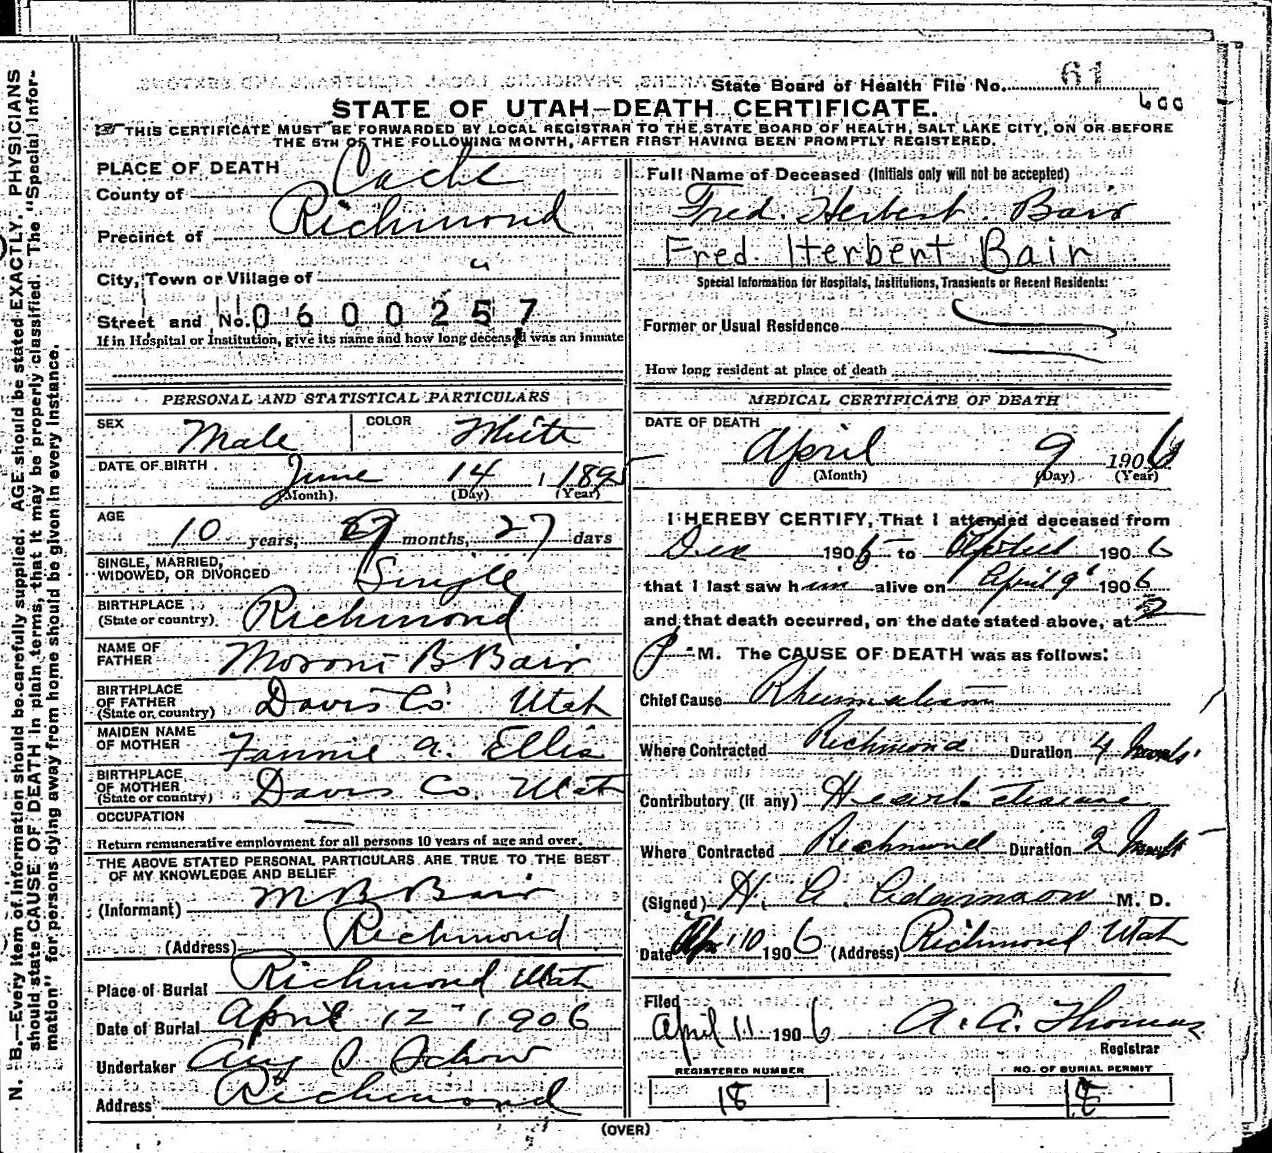 State Board of Health File No. 61
600
STATE OF UTAH—DEATH CERTIFICATE.
THIS CERTIFICATE MUST BE FORWARDED BY LOCAL REGISTRAR TO THE STATE BOARD OF HEALTH, SALT LAKE CITY, ON OR BEFORE
THE 5TH OF THE FOLLOWING MONTH, AFTER FIRST HAVING BEEN PROMPTLY REGISTERED.
PLACE OF DEATH
County of Cache
Precinct of Richmond
City, Town or Village of "
Street and No. 0600257
If in Hospital or Institution, give its name and how long deceased was an inmate
PERSONAL AND STATISTICAL PARTICULARS
SEX Male COLOR White
DATE OF BIRTH June 14, 1895
(Month) (Day) (Year)
AGE
10 years, 9 months, 27 days
SINGLE, MARRIED,
WIDOWED, OR DIVORCED Single
BIRTHPLACE
(State or country) Richmond
NAME OF
FATHER Moroni B Bair
BIRTHPLACE
OF FATHER
(State or country) Davis Co. Utah
MAIDEN NAME
OF MOTHER Fannie A. Ellis
BIRTHPLACE
OF MOTHER
(State or country) Davis Co. Utah
OCCUPATION —
Return remunerative employment for all persons 10 years of age and over.
THE ABOVE STATED PERSONAL PARTICULARS ARE TRUE TO THE BEST
OF MY KNOWLEDGE AND BELIEF
(Informant) M B Bair
(Address) Richmond
Place of Burial Richmond Utah
Date of Burial April 12" 1906
Undertaker Aug S. Schow
Address Richmond
Full Name of Deceased (Initials only will not be accepted)
Fred. Herbert. Bair
Fred. Herbert Bair
Special Information for Hospitals, Institutions, Transients or Recent Residents:
Former or Usual Residence
How long resident at place of death
MEDICAL CERTIFICATE OF DEATH
DATE OF DEATH
April 9 1906
(Month) (Day) (Year)
I HEREBY CERTIFY, That I attended deceased from
Dec 1905 to April 1906
that I last saw him alive on April 9" 1906
and that death occurred, on the date stated above, at 2
P.M. The CAUSE OF DEATH was as follows:
Chief Cause Rheumatism
Where Contracted Richmond Duration 4 months
Contributory (if any) Heart disease
Where Contracted Richmond Duration 2 months
(Signed) H. A. Adamson M. D.
Date Apr. 10 1906 (Address) Richmond Utah
Filed
April 11 1906 A. A. Thomas
Registrar
REGISTERED NUMBER NO. OF BURIAL PERMIT
18 18
(OVER)
N. B.—Every item of information should be carefully supplied. AGE should be stated EXACTLY. PHYSICIANS
should state CAUSE OF DEATH in plain terms, that it may be properly classified. The "Special Infor-
mation" for persons dying away from home should be given in every instance.